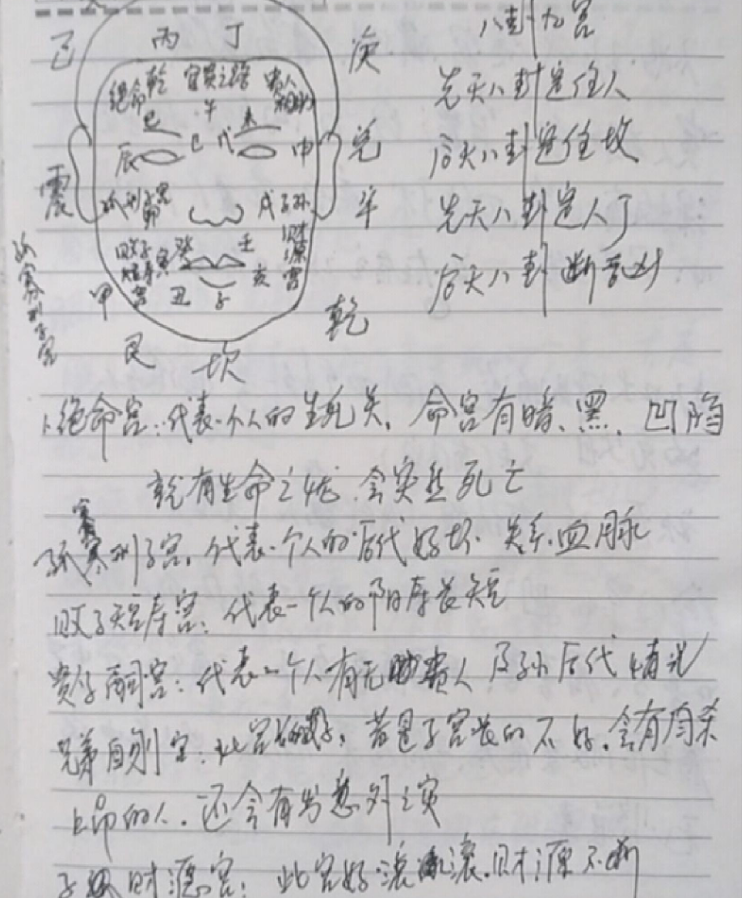 八卦九宫
先天八卦定住人
后天八卦定住坟
先天八卦定人丁
后天八卦断吉凶
己 丙 丁 庚
绝命 乾 官贵之 贵人
巳 午 未
辰 申 兑
震 孤 刑 戌 子孙 辛
败子 短寿宫 癸 壬 财源宫
甲 丑 子 亥 乾
艮 坎
1、绝命宫:代表一个人的生死关,命宫有暗、黑、凹陷
就有生命之忧,会突然死亡
孤寡刑子宫,代表一个人的后代好坏 关系血脉
败子短寿宫:代表一个人的阳寿长短
贵子嗣宫:代表一个人有无贵人 及子孙后代情况
兄弟自刎宫:此宫 若是子宫长的不好,会有自杀
上吊的人,还会有出意外之灾
子孙财源宫:此宫好 滚滚,财源不断